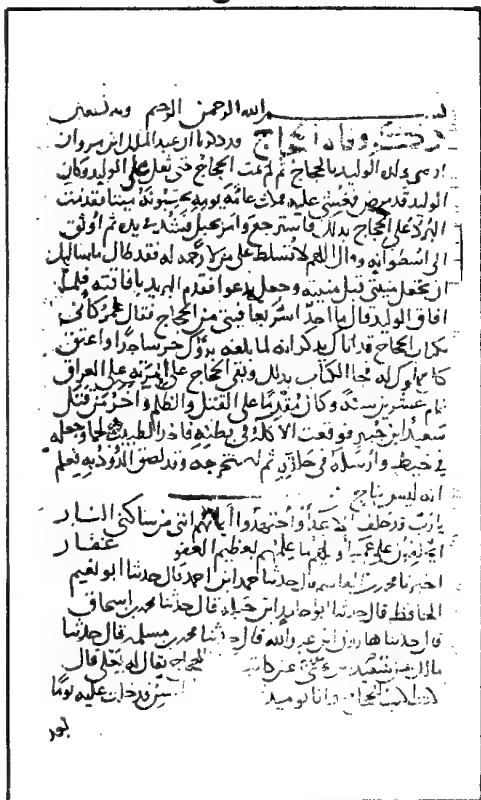 بسم الله الرحمن الرحيم وبه نستعين
وفاة الحجاج ورد ان عبد الملك ابن مروان
اوصى ولده الوليد بالحجاج ثم لم يمت الحجاج حتى ثقل على الوليد وكان
الوليد قد مرض فغشي عليه فمكث عامة يومه يحسبونه ميتا فقدمت
البرد على الحجاج بذلك فاسترجع وامر بحبل فشد في يده ثم اوثق
الى اسطوانه وقال اللهم لا تسلط علي من لا رحمة له فقد طال ما سالتك
ان تجعل منيتي قبل منيته وجعل يدعو فقدم البريد بافاقته فلما
افاق الوليد قال ما احد اسر بعافيتي من الحجاج فقال عمر كاني
بكتاب الحجاج قد اتاك يذكر انه لما بلغه برؤك خر ساجدا واعتق
كل مملوك له فجا الكتاب بذلك وبقي الحجاج على امرته على العراق
تمام عشرين سنة وكان مقدما على القتل والظلم واخر من قتل
سعيد ابن جبير فوقعت الاكلة في بطنه فاخذ الطبيب لحما وجعله
في خيط وارسله في حلقه ثم استخرجه وقد لصق الدود به فعلم
انه ليس بناج
يا رب قد حلف الاعداء واجتهدوا ايمانهم انني من ساكني النار
ايحلفون على عميا ويلهم ما علمهم بعظيم العفو غفار
اخبرنا محمد بن القاسم قال حدثنا حمد ابن احمد قال حدثنا ابو نعيم
الحافظ قال حدثنا ابو حامد ابن جبلة قال حدثنا محمد بن اسحاق
قال حدثنا هارون ابن عبد الله قال حدثنا محمد بن مسلمة قال حدثنا
مالك بن سعيد عن كاتب الحجاج يقال له يعلى قال
كنت اكتب للحجاج وانا يوميذ السن فدخلت عليه يوما
بعد